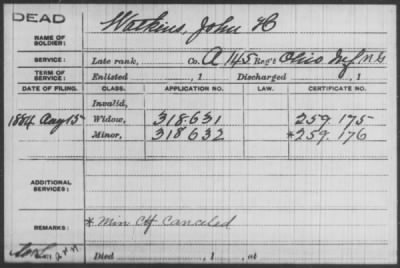 DEAD
Watkins, John H
NAME OF SOLDIER:
SERVICE: Late rank, Co. A 145 Reg't Ohio Inf. N G
TERM OF SERVICE: Enlisted , 1 Discharged , 1
DATE OF FILING. CLASS. APPLICATION NO. LAW. CERTIFICATE NO.
Invalid,
1884 Aug 15 Widow, 318.631 259 175
Minor, 318 632 *259. 176
ADDITIONAL SERVICES:
REMARKS: * Min Ctf Canceled
Died , 1 , at